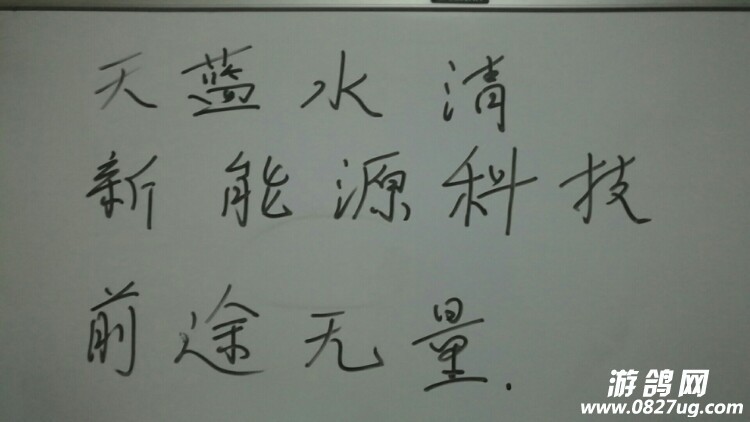 天蓝水清
新能源科技
前途无量.
游鸽网
www.0827ug.com